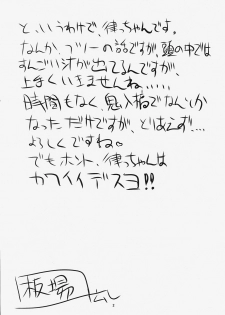 と、いうわけで、律っちゃんです。
なんか、ブリーの話ですが、頭の中では
すんごい汁が出てるんですが、
上手くいきませんね、、、、、
時間もなく、鬼入稿でなんか
なっただけですが、とりあえず、、、、
よろしくですね。
でもホント、律っちゃんは
カワイイデスヨ!!
板場